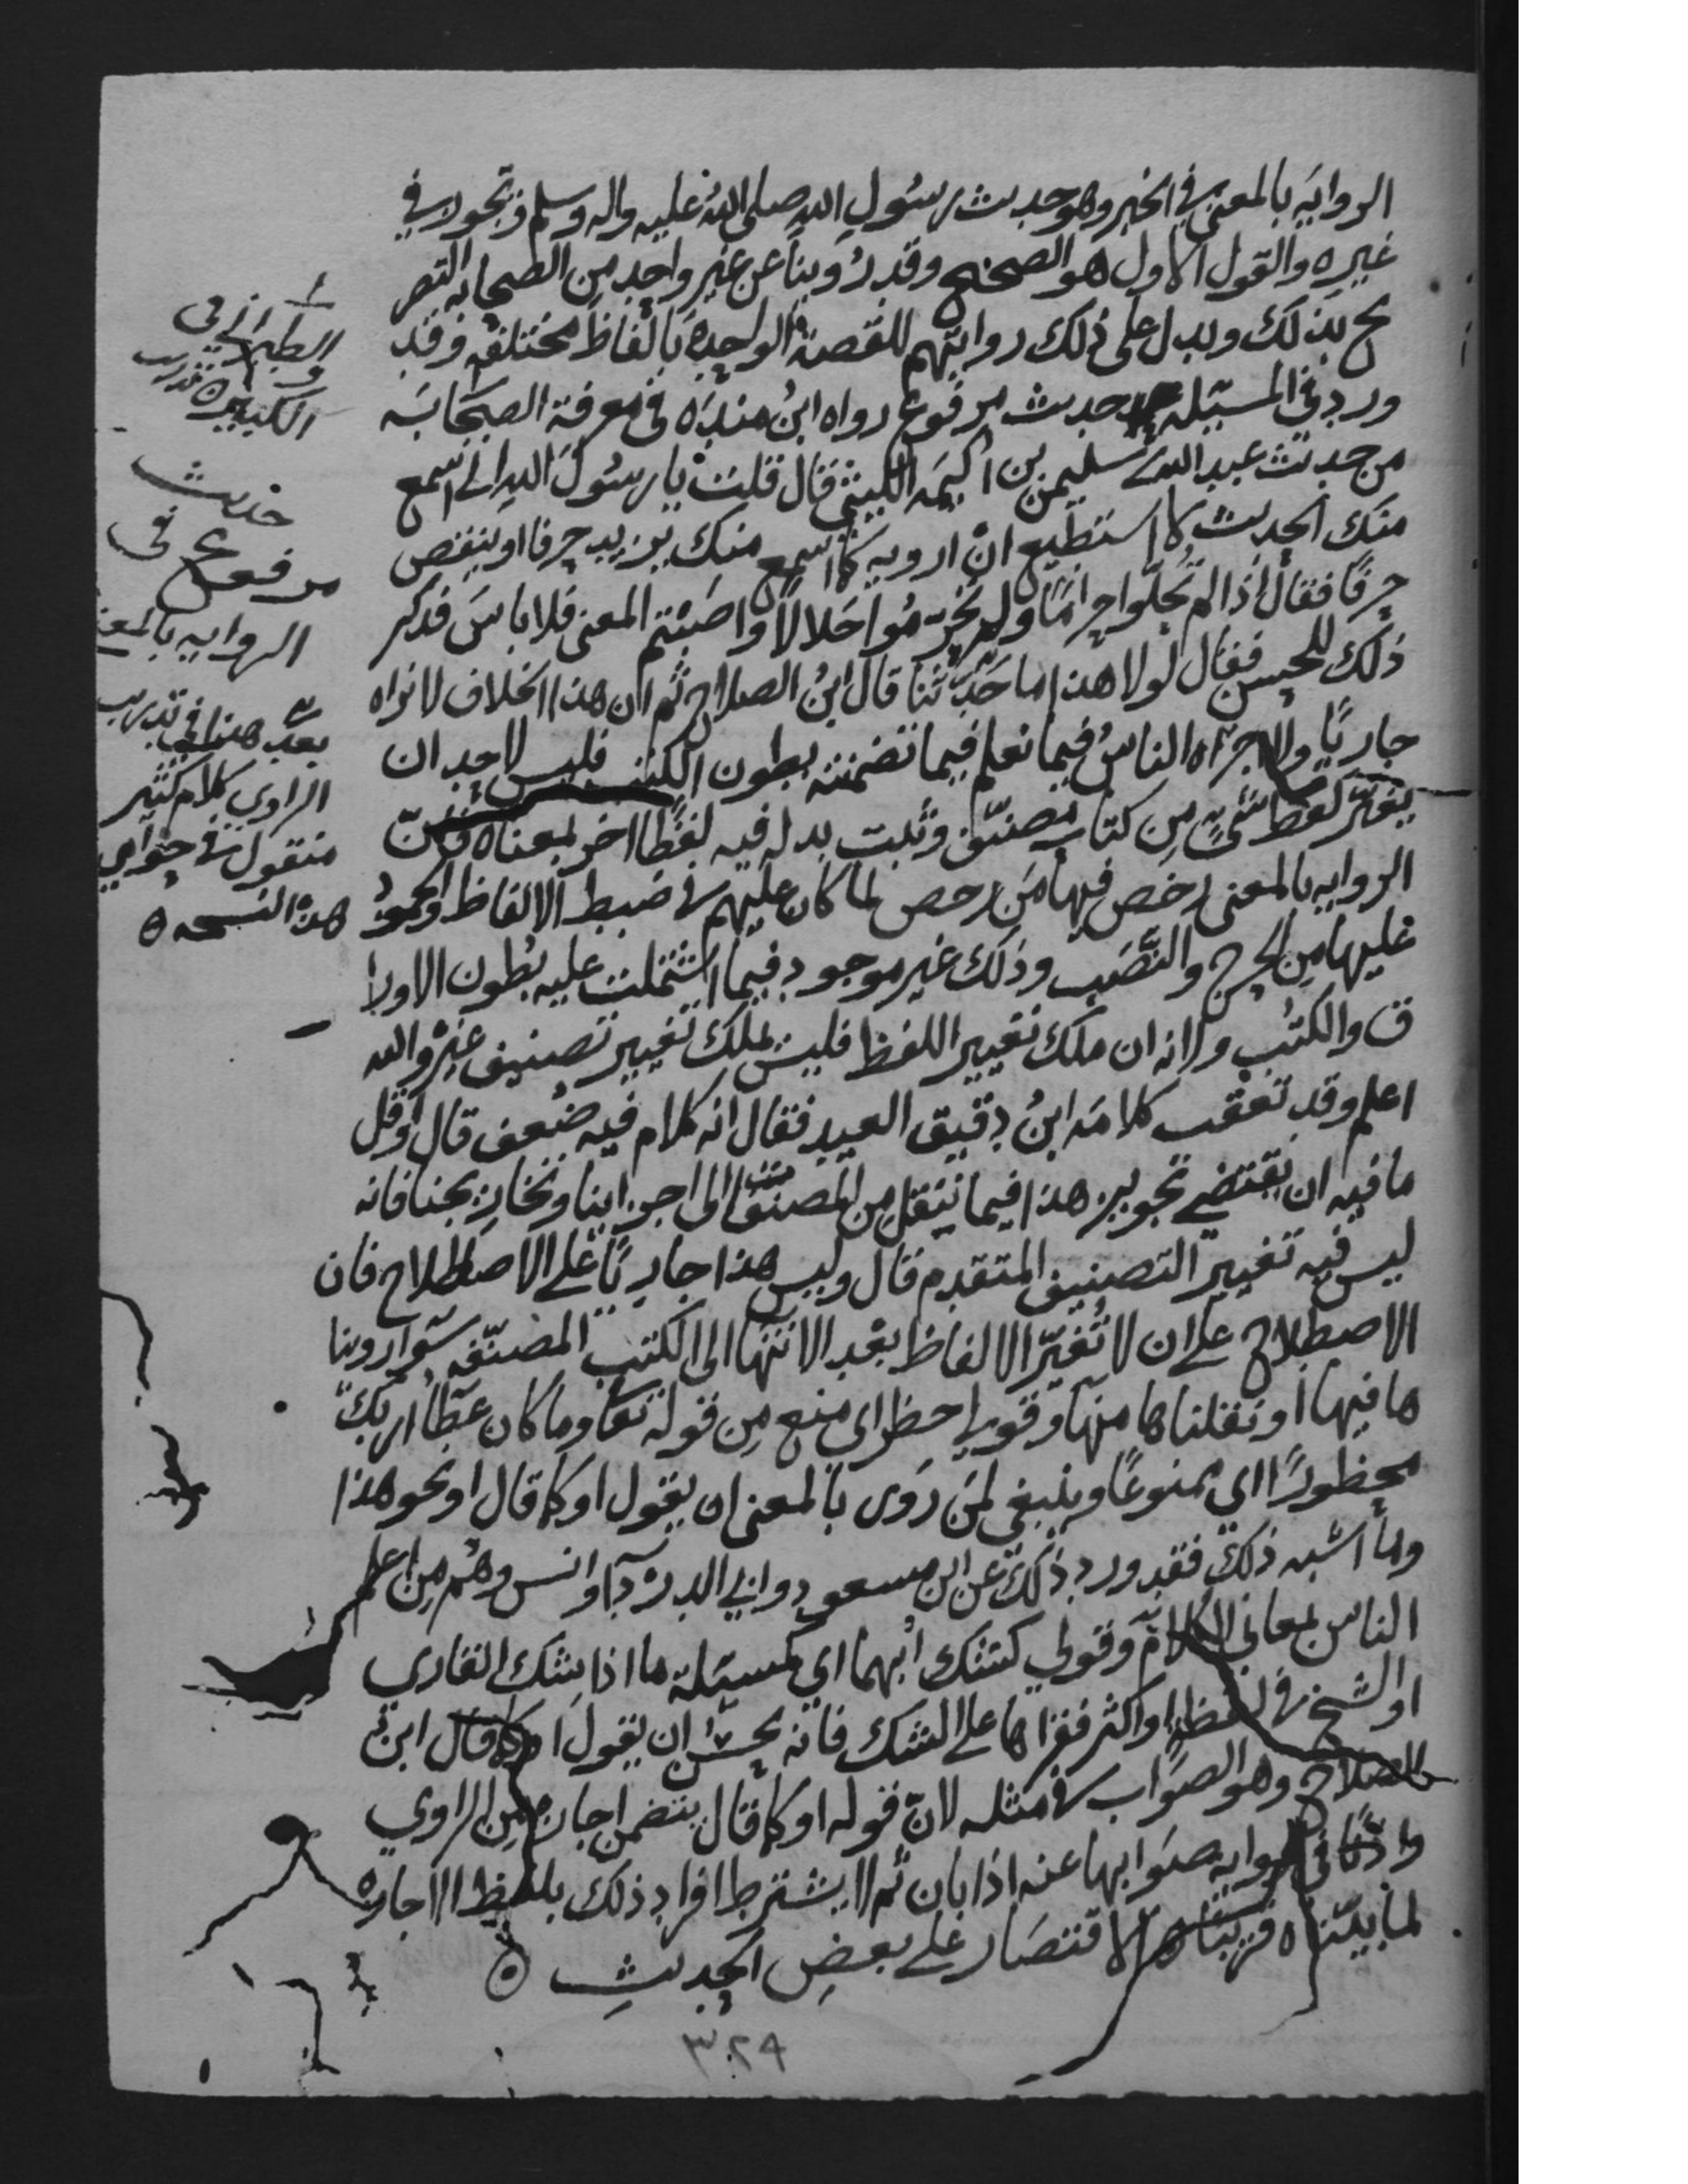 الروايه بالمعنى في الخبر وهو حديث رسول الله صلى الله عليه واله وسلم وتجوز في
غيره والقول الاول هو الصحيح وقد رُوينا عن غير واحد من الصحابه التصر
يح بذلك ويدل على ذلك روايتهم للقصة الواحدة بالفاظ مختلفه وقد
ورد في المسئلة حديث مرفوع رواه ابنُ مندَه في معرفة الصحابَه
من حديث عبد الله سليمن بن اكيمَه الليثي قال قلت يا رسُولَ الله اني اسمع
منك الحديث لا استطيع انْ ارويه كما اسمع منك يزيد حرفا او ينقص
حرفًا فقال اذا لم تُحلّوا حرامًا ولم تحرّمُوا حَلالًا واصَبْتم المعنى فلا باسَ فذكر
ذلك للحسن فقال لولا هذا ما حَدّثنا قال ابنُ الصلاح ثم ان هذا الخلاف لا نراه
جاريًا ولا اجراه الناسُ فيما نعلم فيما تضمنته بطون الكتب فليس لاحد ان
يغيّر لفظ شئٍ مِن كتاب مصنّف ويثبت بدله فيه لفظًا اخر بمعناه فانّ
الروايه بالمعنى رخص فيها مَن رخص لما كان عليهم في ضبط الالفاظ والجمودُ
عليها مِن الحرج والنَّصَب وذلك غير موجود فيما اشتملت عليه بُطون الاورا
ق والكتُب ولانه ان ملك تغيير اللفظ فليس يملك تغيير تصنيف غيره والله
اعلم وقد تعقب كلامَه ابنُ دقيق العيد فقال انه كلام فيه ضُعف قال واقل
ما فيه ان يقتضي تجويز هذا فيما ننقل مِن المصنفات الى اجزاينا وتخاريجنا فانه
ليس فيه تغيير التصنيف المتقدم قال وليس هذا جاريًا على الاصطلاح فان
الاصطلاح على ان لا تُغيّر الالفاظ بعْد الانتها الى الكتب المصنّفه سَوا روينا
ها فيها او نقلناها منها وقولي احظر اي منع مِن قوله تعا وما كان عطَآ ربكَ
محظورًا اي ممنوعًا وينبغي لمَن رَوَى بالمعنى ان يقول او كما قال او نحو هذا
وما اشبه ذلك فقد ورد ذلك عن ابن مسعود وابي الدردآ وانس وهُم مِن اعلم
الناس بمعاني الكلام وقولي كشك ابهما اي كمسئلة ما اذا شك القاري
او الشيخ في لفظه او اكثر فقراها على الشك فانه يحسن ان يقول او كما قال ابنُ
الصلاح وهو الصوَاب في مثله لانّ قوله او كما قال يتضمن اجازة مِن الراوي
واذنًا في رواية صوَابها عنه اذا بان ثم لا يشترط افراد ذلك بلفظ الاجازه
لما بيّناه قريبًا الاقتصار على بعضِ الحديثِ
الطبراني في
الكبير
تدريب
حديث
مرفوع في
الروايه بالمعنى
بعدَ هذا في تدريب
الراوي كلام كثير
منقول في حواي
هذه النسخه